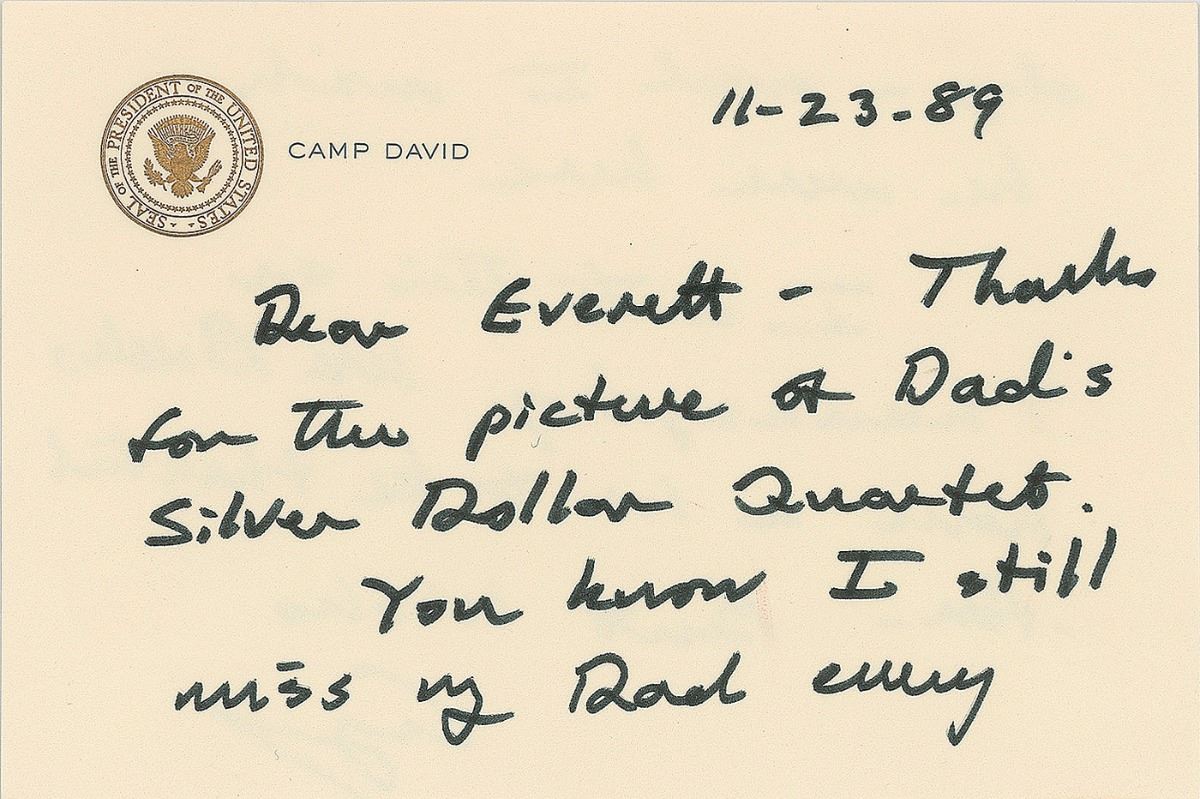 SEAL OF THE PRESIDENT OF THE UNITED STATES
CAMP DAVID
11-23-89
Dear Everett - Thanks
for the picture of Dad's
Silver Dollar Quartet.
You know I still
miss my Dad every